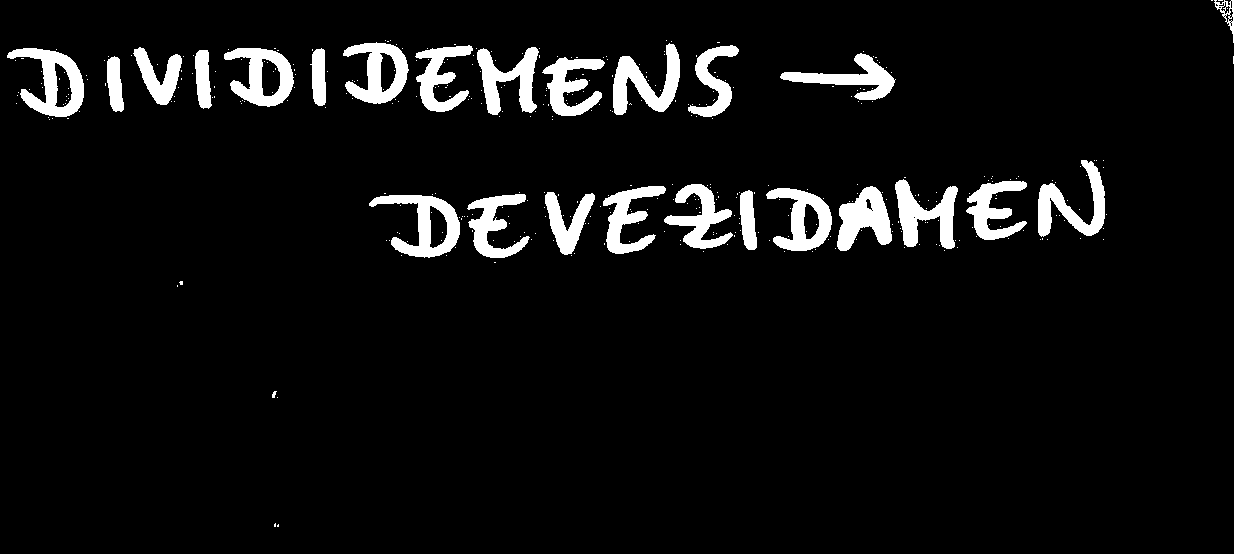 DIVIDIDEMENS →
DEVEZIDAMEN